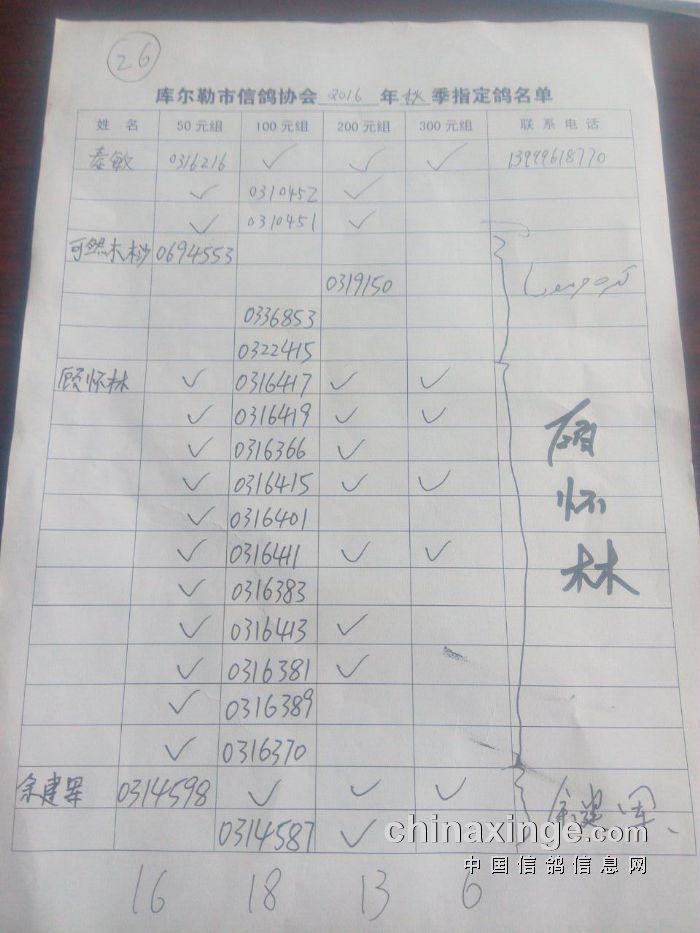 26
库尔勒市信鸽协会 2016 年 秋 季指定鸽名单
姓 名 50元组 100元组 200元组 300元组 联系电话
秦敏 0316216 ✓ ✓ ✓ 13999618770
✓ 0310452 ✓
✓ 0310451 ✓
可然木 0694553
0319150
0336853
0322415
顾怀林 ✓ 0316417 ✓ ✓
✓ 0316419 ✓ ✓
✓ 0316366 ✓
✓ 0316415 ✓ ✓
✓ 0316401
✓ 0316411 ✓ ✓
✓ 0316383
✓ 0316413 ✓
✓ 0316381 ✓
✓ 0316389
✓ 0316370
顾怀林
余建军 0314598 ✓ ✓ ✓ 余建军
0314587 ✓
16 18 13 6
chinaxinge.com
中国信鸽信息网